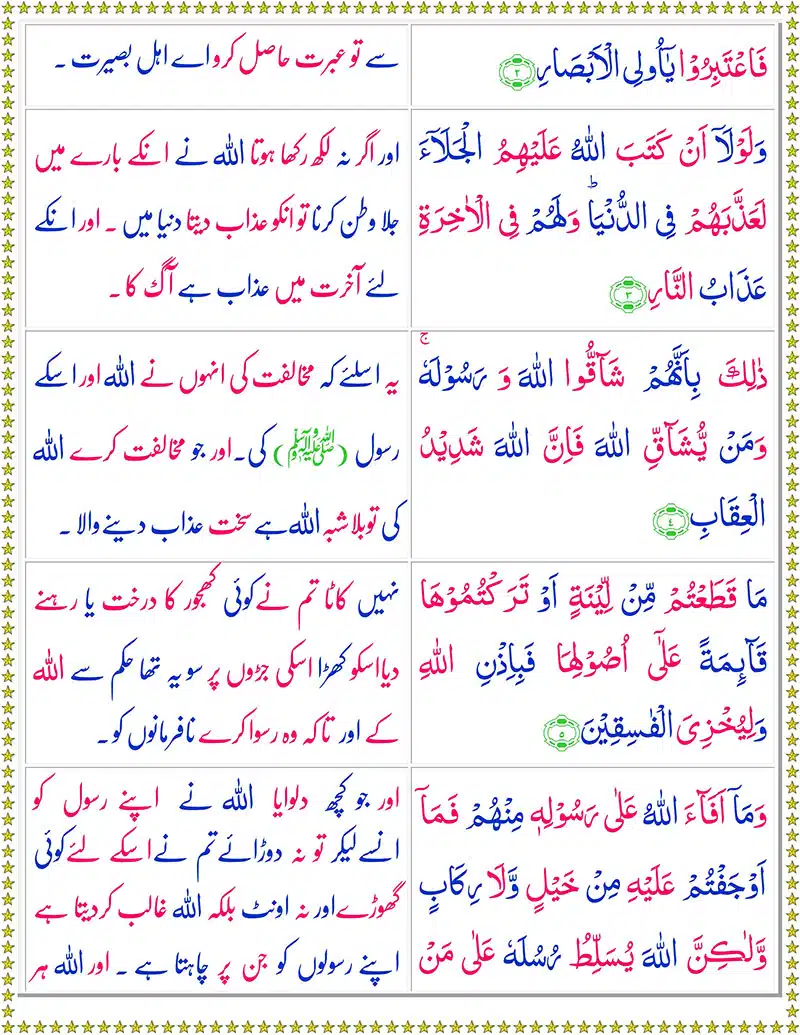 فَاعْتَبِرُوْا يٰۤاُولِی الْاَبْصَارِ ﴿۲﴾
سے تو عبرت حاصل کرو اے اہل بصیرت ۔
وَلَوْلَاۤ اَنْ كَتَبَ اللّٰهُ عَلَيْهِمُ الْجَلَآءَ
لَعَذَّبَهُمْ فِی الدُّنْيَا ؕ وَلَهُمْ فِی الْاٰخِرَةِ
عَذَابُ النَّارِ ﴿۳﴾
اور اگر نہ لکھ رکھا ہوتا اللہ نے انکے بارے میں
جلا وطن کرنا تو انکو عذاب دیتا دنیا میں ۔ اور انکے
لئے آخرت میں عذاب ہے آگ کا ۔
ذٰلِكَ بِاَنَّهُمْ شَآقُّوا اللّٰهَ وَ رَسُوْلَهٗ ۚ
وَمَنْ يُّشَآقِّ اللّٰهَ فَاِنَّ اللّٰهَ شَدِيْدُ
الْعِقَابِ ﴿۴﴾
یہ اسلئے کہ مخالفت کی انہوں نے اللہ اور اسکے
رسول (ﷺ) کی۔ اور جو مخالفت کرے اللہ
کی تو بلا شبہ اللہ ہے سخت عذاب دینے والا ۔
مَا قَطَعْتُمْ مِّنْ لِّيْنَةٍ اَوْ تَرَكْتُمُوْهَا
قَآئِمَةً عَلٰۤى اُصُوْلِهَا فَبِاِذْنِ اللّٰهِ
وَلِيُخْزِیَ الْفٰسِقِيْنَ ﴿۵﴾
نہیں کاٹا تم نے کوئی کھجور کا درخت یا رہنے
دیا اسکو کھڑا اسکی جڑوں پر سو یہ تھا حکم سے اللہ
کے اور تاکہ وہ رسوا کرے نافرمانوں کو ۔
وَمَاۤ اَفَآءَ اللّٰهُ عَلٰى رَسُوْلِهٖ مِنْهُمْ فَمَاۤ
اَوْجَفْتُمْ عَلَيْهِ مِنْ خَيْلٍ وَّلَا رِكَابٍ
وَّلٰكِنَّ اللّٰهَ يُسَلِّطُ رُسُلَهٗ عَلٰى مَنْ
اور جو کچھ دلوایا اللہ نے اپنے رسول کو
انسے لیکر تو نہ دوڑائے تم نے اسکے لئے کوئی
گھوڑے اور نہ اونٹ بلکہ اللہ غالب کردیتا ہے
اپنے رسولوں کو جن پر چاہتا ہے ۔ اور اللہ ہر